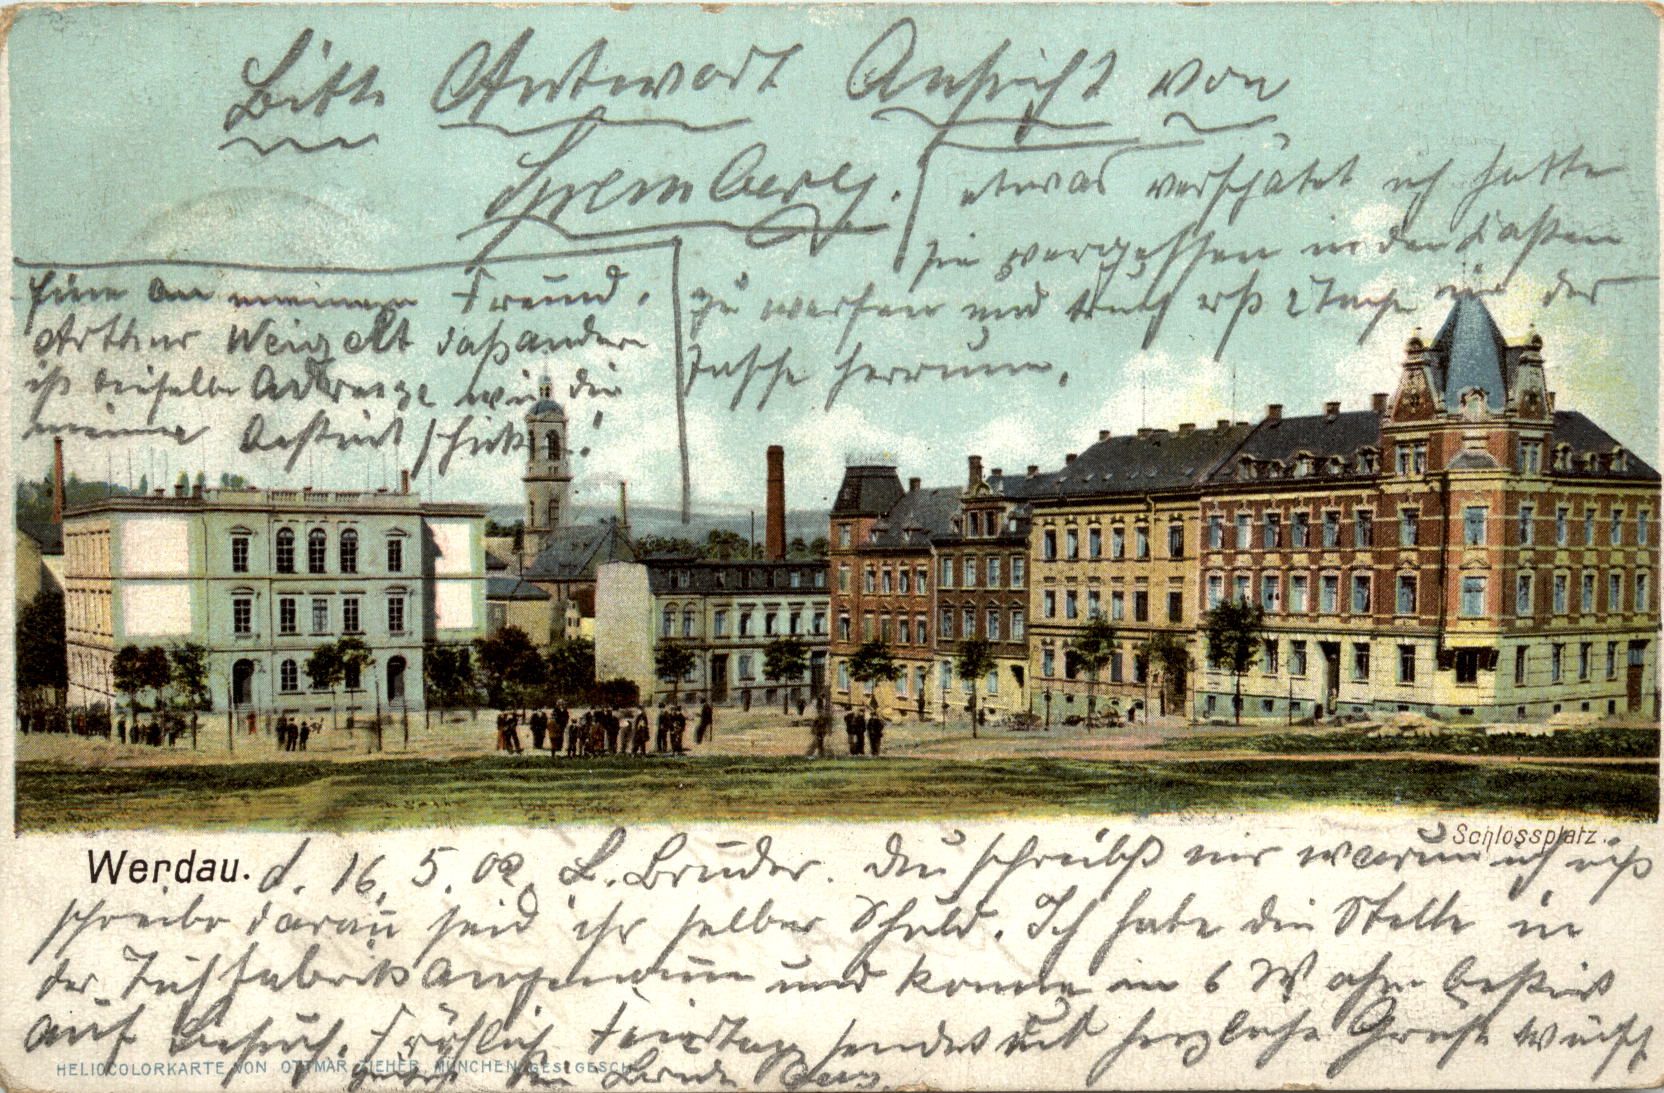 Bitte Antwort Ansicht von
Spremberg.
etwas verspätet ich hatte
sie vergessen in den Kasten
zu werfen und trug erst 2 Tage in der
Tasche herrum.
Eine an meinem Freund.
Arthur Weigelt das andere
ist dieselbe Adresse wie die
meine schickt.
Werdau.
Schlossplatz.
d. 16. 5. 02. L. Bruder. Du schreibst mir warum ich nicht
schreibe daran seid ihr selber Schuld. Ich habe die Stelle in
der Tuchfabrik angenommen und komme in 6 W bestimt
auf Besuch. Fröhlich sendet und herzliche Grüße
HELIOCOLORKARTE VON OTTMAR ZIEHER, MÜNCHEN, GES. GESCH.